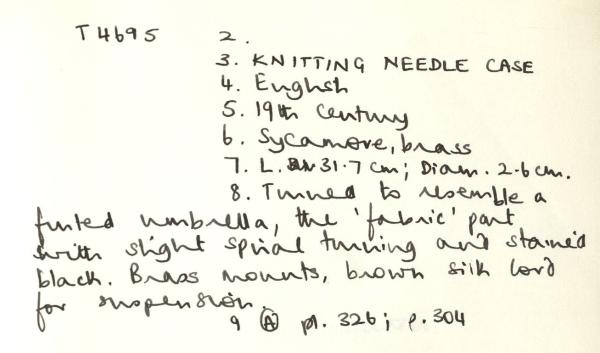 T 4695 2.
3. KNITTING NEEDLE CASE
4. English
5. 19th Century
6. Sycamore, brass
7. L. 31.7 cm; Diam. 2.6 cm.
8. Turned to resemble a
furled umbrella, the 'fabric' part
with slight spiral turning and stained
black. Brass mounts, brown silk cord
for suspension.
9 Ⓐ pl. 326; p. 304